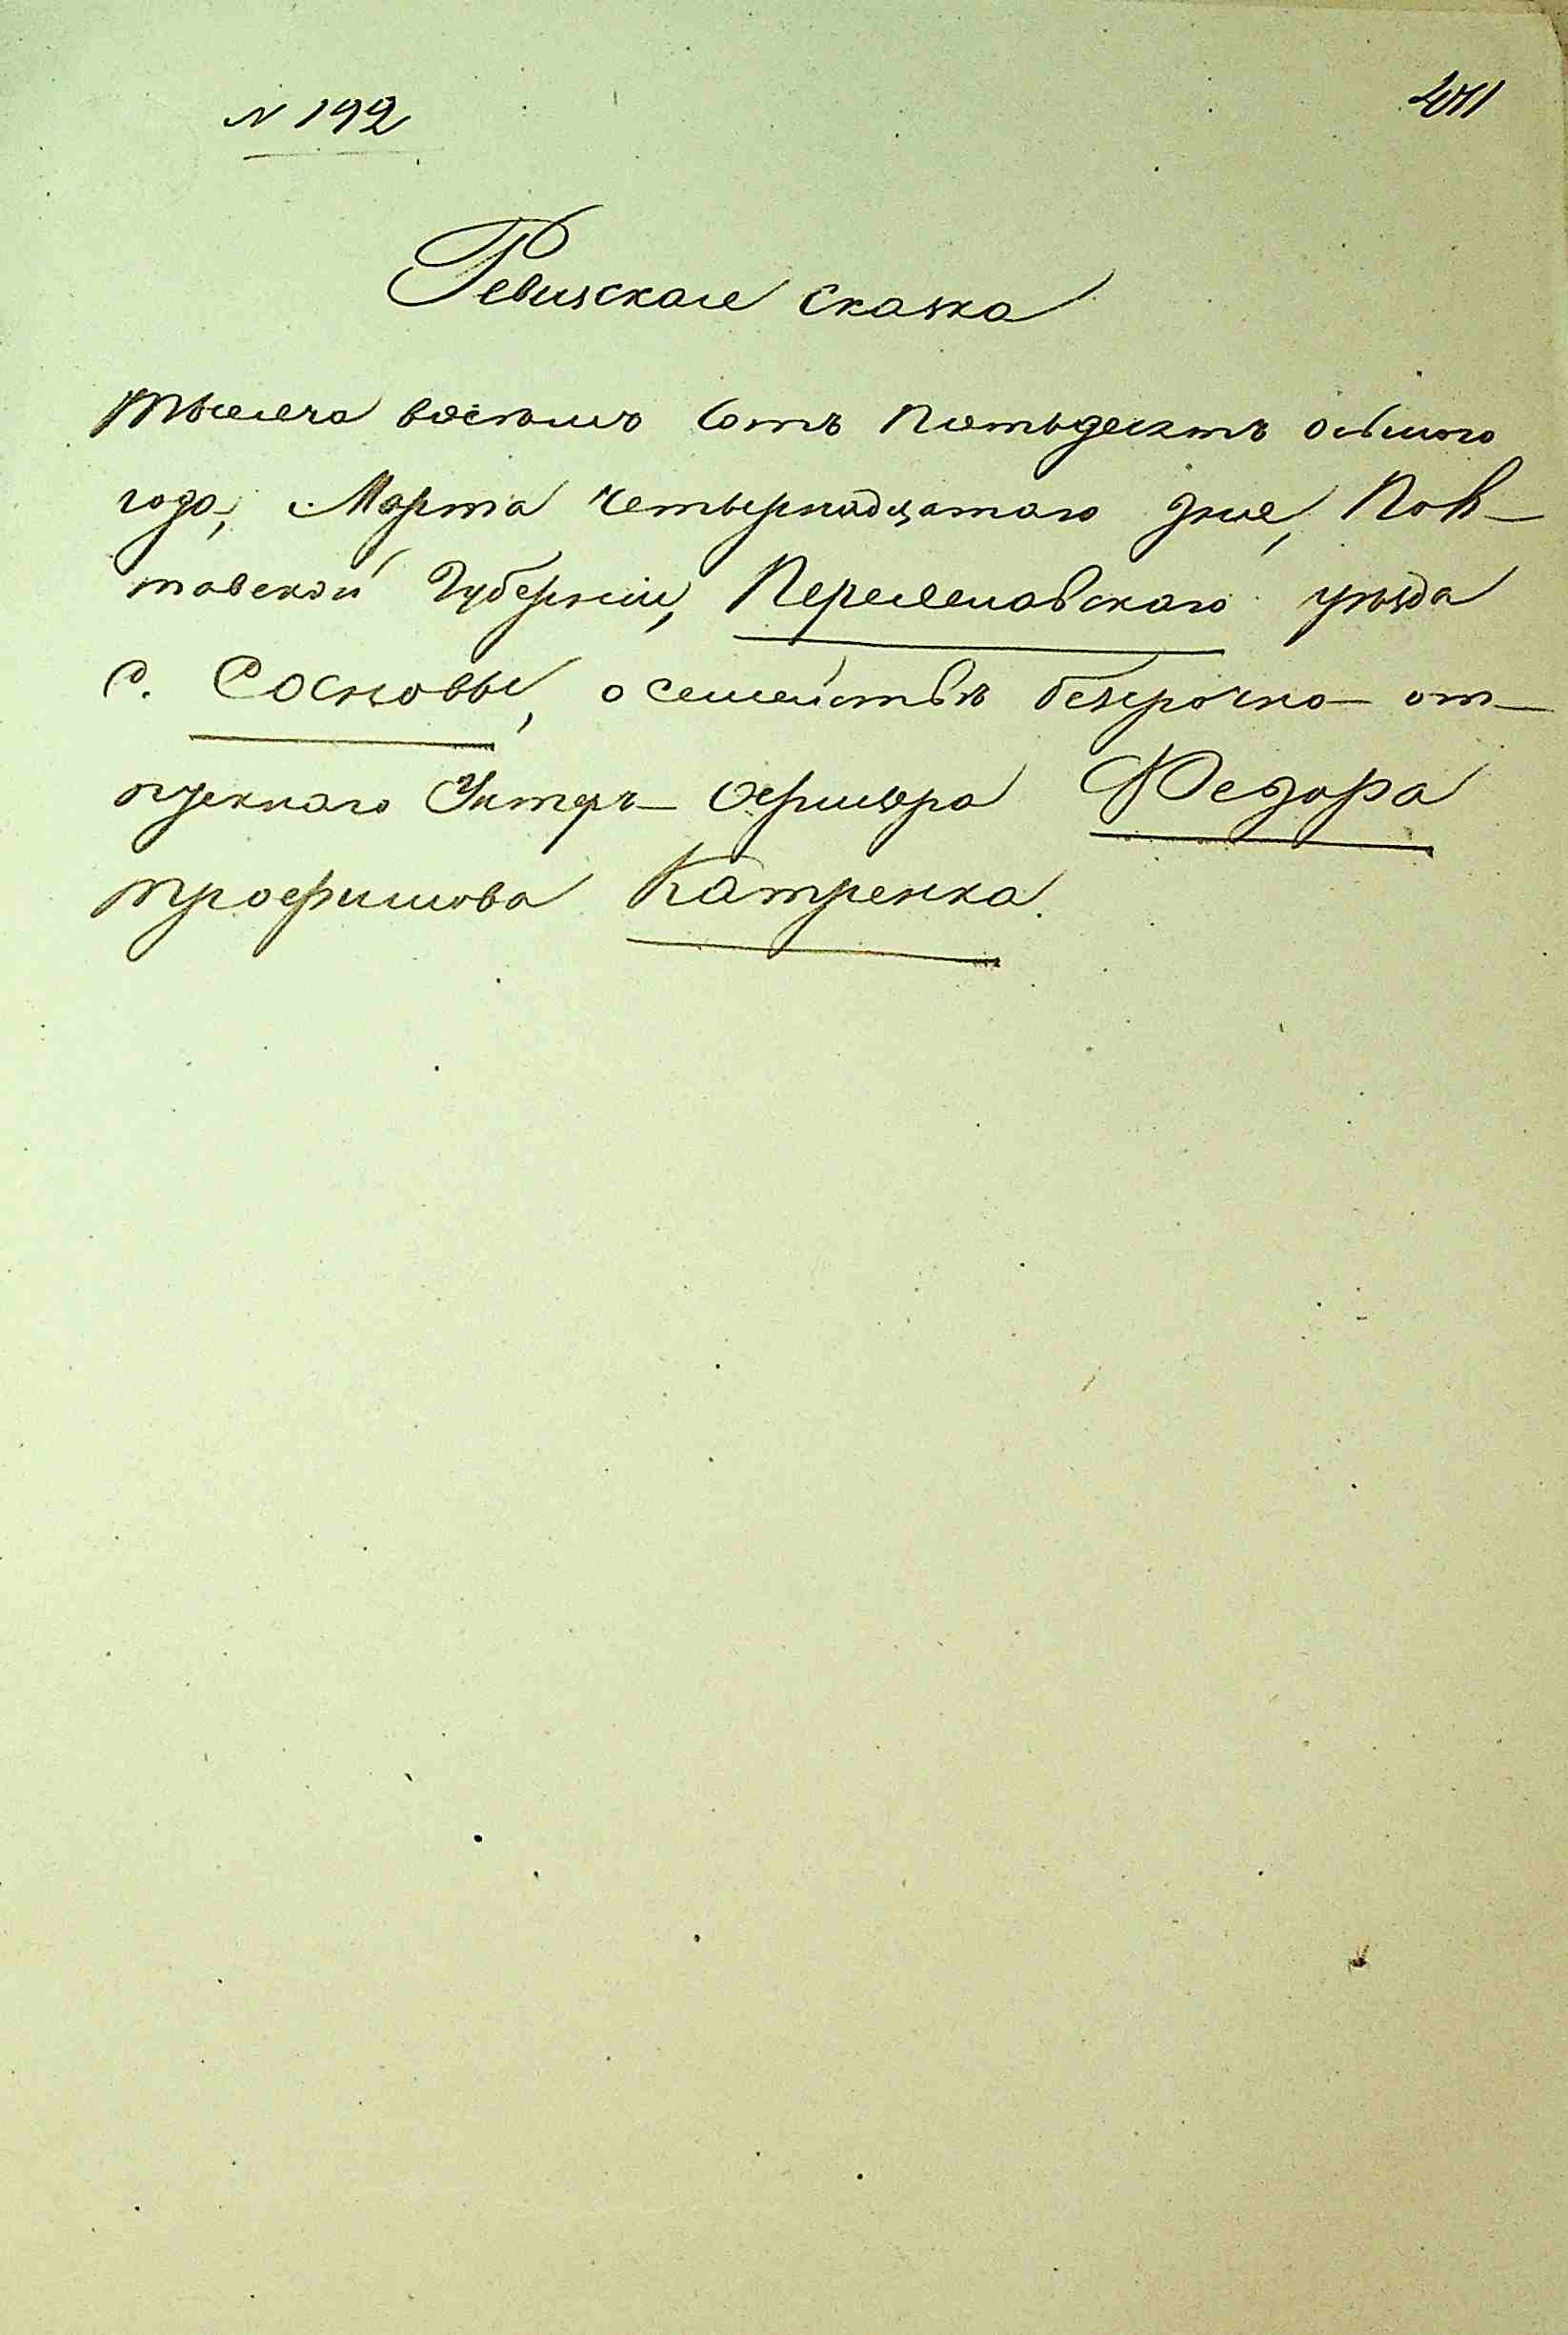 N 192
Ревизская сказка
тысяча восемь сотъ пятьдесятъ осьмого
года, Марта четырнадцатаго дня, Пол-
тавской Губерніи, Переяславскаго уѣзда
с. Сосновы, о семействѣ безсрочно-от-
пускнаго Унтеръ-офицера Федора
трофимова Катренка.